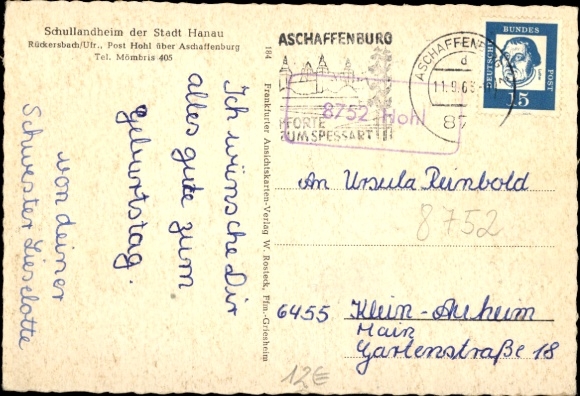 Schullandheim der Stadt Hanau
Rückersbach/Ufr., Post Hohl über Aschaffenburg
Tel. Mömbris 405
Ich wünsche Dir
alles gute zum
geburtstag.
von deiner
Schwester Lieselotte
184
Frankfurter Ansichtskarten-Verlag W. Rosteck, Ffm.-Griesheim
ASCHAFFENBURG
PFORTE
ZUM SPESSART
8752 Hohl
ASCHAFFENBURG
d
11.9.63
87
DEUTSCHE
BUNDES
POST
15
An Ursula Reinbold
8752
6455 Klein-Auheim
Main
Gartenstraße 18
12€